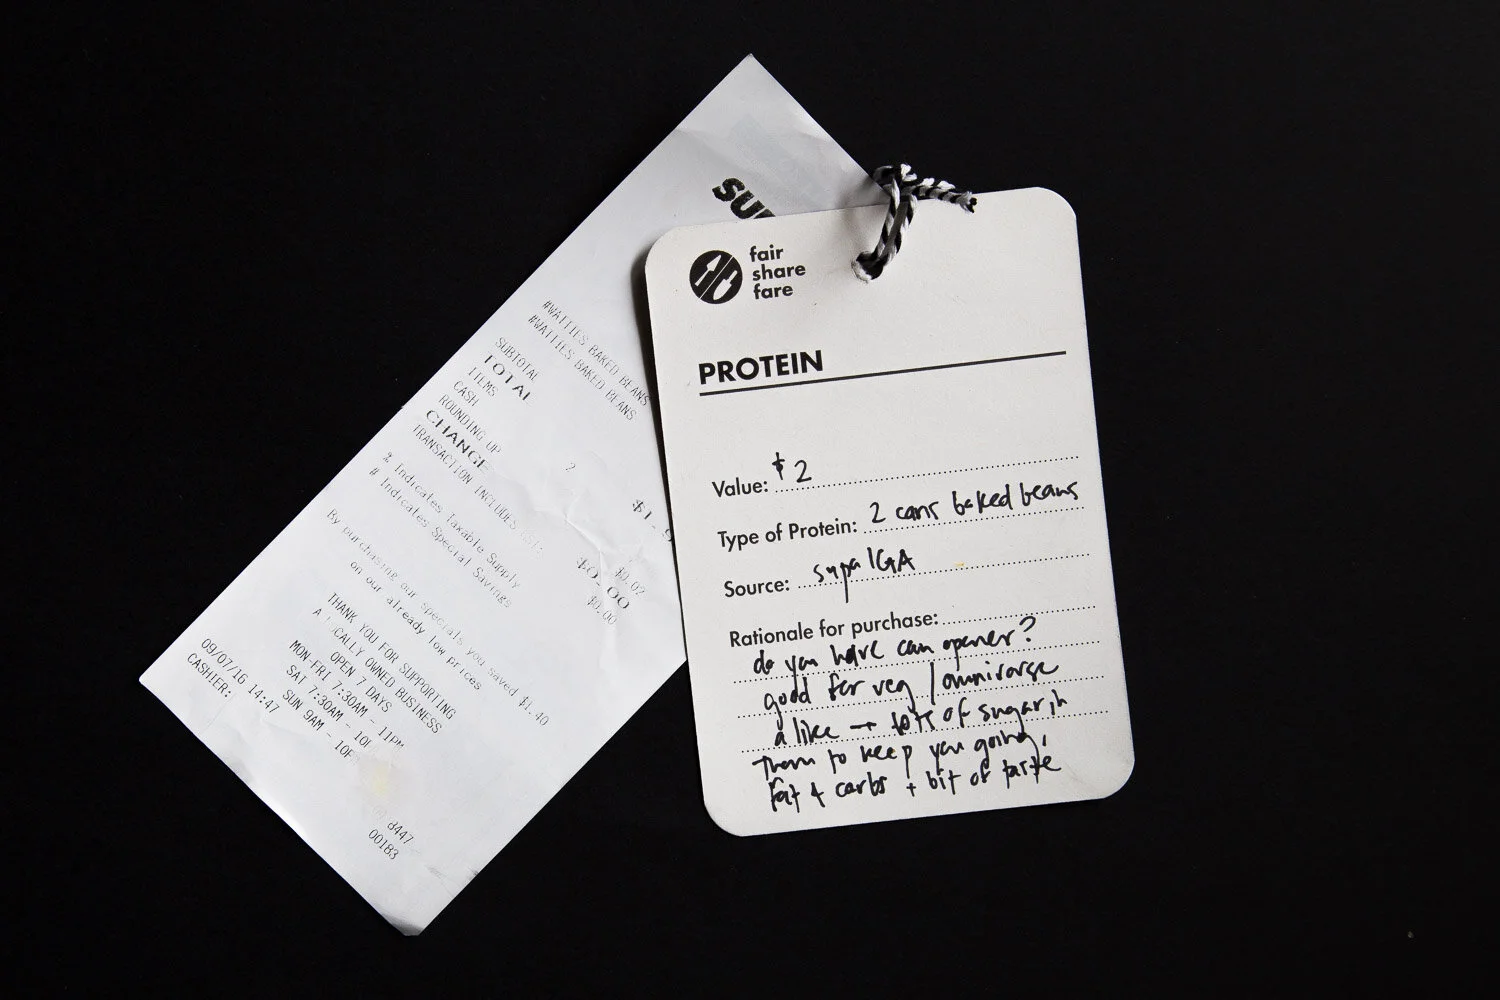 SU
#WATTIES BAKED BEANS
#WATTIES BAKED BEANS
SUBTOTAL
TOTAL $1.9
ITEMS 2
CASH
ROUNDING UP $0.02
CHANGE $0.00
TRANSACTION INCLUDES $0.00
% Indicates Taxable Supply
# Indicates Special Savings
By purchasing our specials you saved $1.40
on our already low prices
THANK YOU FOR SUPPORTING
A LOCALLY OWNED BUSINESS
OPEN 7 DAYS
MON-FRI 7:30AM - 11PM
SAT 7:30AM - 10
SUN 9AM - 10P
09/07/16 14:47 8447
CASHIER: 00183
fair
share
fare
PROTEIN
Value: $2
Type of Protein: 2 cans baked beans
Source: supa IGA
Rationale for purchase:
do you have can opener?
good for veg / omnivorse
alike → lots of sugar in
them to keep you going,
fat & carbs + bit of taste